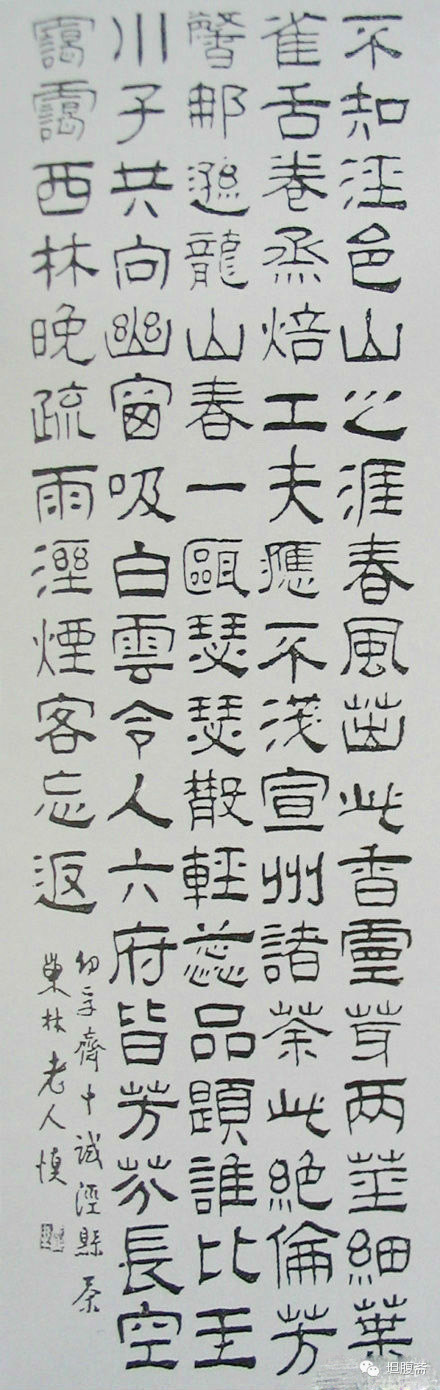 不知涇邑山之涯春風茁此香靈芽两莖細葉
雀舌卷烝焙工夫應不淺宣州諸茶此絕倫芳
馨那遜龍山春一甌瑟瑟散輕蕊品題誰比玉
川子共向幽窗吸白雲令人六府皆芳芬長空
靄靄西林晚疏雨溼煙客忘返
幼孚齋中試涇縣茶
巢林老人慎
坦腹斋